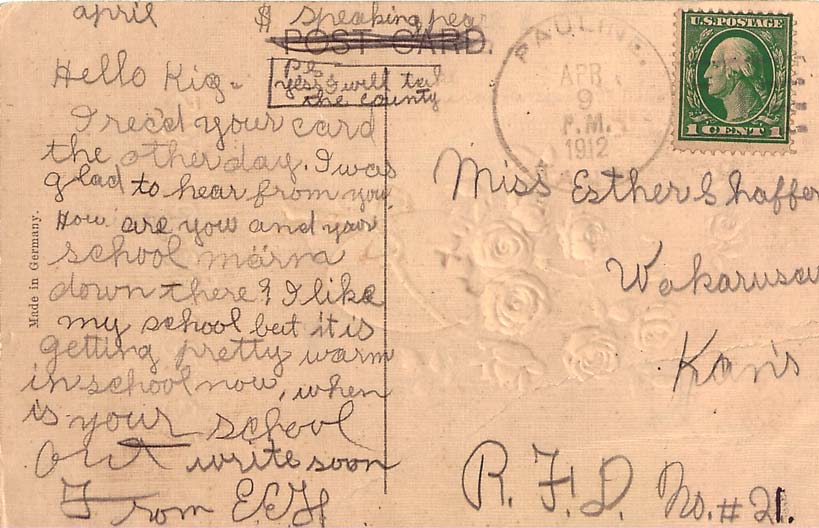 april
$ speaking pear
POST CARD.
P.S.
yes I will tak
the county
Hello Kig.
I rec'd your card
the other day. I was
glad to hear from you
How are you and your
school
down there? I like
my school but it is
getting pretty warm
in school now, when
is your school
out write soon
From E.E.H
Made in Germany.
PAULINE.
APR
9
P.M.
1912
U.S. POSTAGE
1 CENT 1
Miss Esther Shaffer
Wakarusa
Kans
R. F. D. No. # 21.